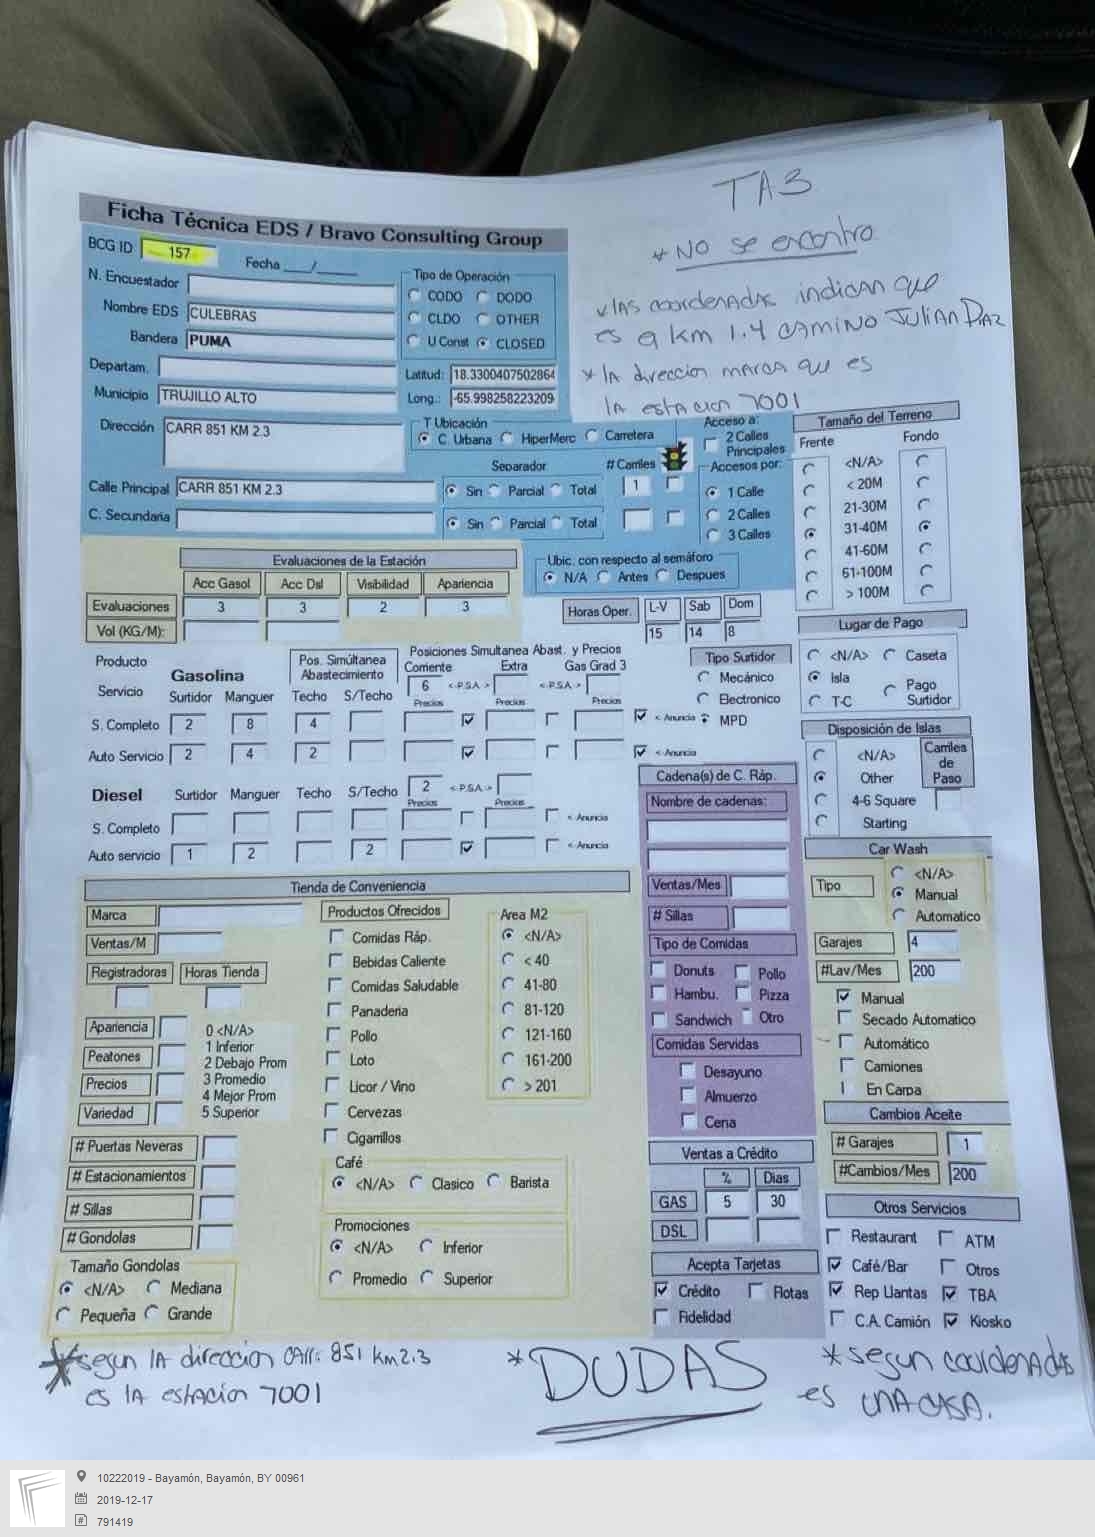 TA3
* NO se encontro
Ficha Técnica EDS / Bravo Consulting Group
BCG ID 157
Fecha ___/____
N. Encuestador
Nombre EDS CULEBRAS
Bandera PUMA
Departam.
Municipio TRUJILLO ALTO
Tipo de Operación
CODO DODO
CLDO OTHER
U Const CLOSED
Latitud: 18.3300407502864
Long.: -65.998258223209
LAS coordenadas indican que
es a km 1.4 CAMINO JULIAN DIAZ
* la direccion marca que es
la estacion 7001
Dirección CARR 851 KM 2.3
T Ubicación
C. Urbana HiperMerc Carretera
Separador
# Carriles
Calle Principal CARR 851 KM 2.3
Sin Parcial Total 1
C. Secundaria
Sin Parcial Total
Acceso a:
2 Calles
Principales
Accesos por:
1 Calle
2 Calles
3 Calles
Ubic. con respecto al semáforo
N/A Antes Despues
Tamaño del Terreno
Frente Fondo
<N/A>
< 20M
21-30M
31-40M
41-60M
61-100M
> 100M
Evaluaciones de la Estación
Acc Gasol Acc Dsl Visibilidad Apariencia
Evaluaciones 3 3 2 3
Vol (KG/M):
Horas Oper. L-V Sab Dom
15 14 8
Lugar de Pago
<N/A> Caseta
Isla Pago
T-C Surtidor
Producto
Servicio
Gasolina
Surtidor Manguer
Pos. Simúltanea
Abastecimiento
Techo S/Techo
Posiciones Simultanea Abast. y Precios
Corriente Extra Gas Grad 3
6 <-P.S.A-> <-P.S.A->
Precios Precios Precios
S. Completo 2 8 4 <-Anuncia
Auto Servicio 2 4 2 <-Anuncia
Tipo Surtidor
Mecánico
Electronico
MPD
Disposición de Islas
<N/A>
Other
4-6 Square
Starting
Carriles
de
Paso
Diesel Surtidor Manguer Techo S/Techo 2 <-P.S.A->
Precios Precios
S. Completo <-Anuncia
Auto servicio 1 2 2 <-Anuncia
Cadena(s) de C. Ráp.
Nombre de cadenas:
Ventas/Mes
# Sillas
Tipo de Comidas
Donuts Pollo
Hambu. Pizza
Sandwich Otro
Comidas Servidas
Desayuno
Almuerzo
Cena
Car Wash
Tipo
<N/A>
Manual
Automatico
Garajes 4
#Lav/Mes 200
Manual
Secado Automatico
Automático
Camiones
En Carpa
Cambios Aceite
# Garajes 1
#Cambios/Mes 200
Tienda de Conveniencia
Marca
Ventas/M
Registradoras Horas Tienda
Apariencia
Peatones
Precios
Variedad
0 <N/A>
1 Inferior
2 Debajo Prom
3 Promedio
4 Mejor Prom
5 Superior
# Puertas Neveras
# Estacionamientos
# Sillas
# Gondolas
Tamaño Gondolas
<N/A> Mediana
Pequeña Grande
Productos Ofrecidos
Comidas Ráp.
Bebidas Caliente
Comidas Saludable
Panaderia
Pollo
Loto
Licor / Vino
Cervezas
Cigarrillos
Area M2
<N/A>
< 40
41-80
81-120
121-160
161-200
> 201
Café
<N/A> Clasico Barista
Promociones
<N/A> Inferior
Promedio Superior
Ventas a Crédito
% Dias
GAS 5 30
DSL
Acepta Tarjetas
Crédito Flotas
Fidelidad
Otros Servicios
Restaurant ATM
Café/Bar Otros
Rep Llantas TBA
C.A. Camión Kiosko
* segun la direccion carr. 851 km 2.3
es la estacion 7001
* DUDAS
* segun coordenadas
es UNA CASA.
10222019 - Bayamón, Bayamón, BY 00961
2019-12-17
791419